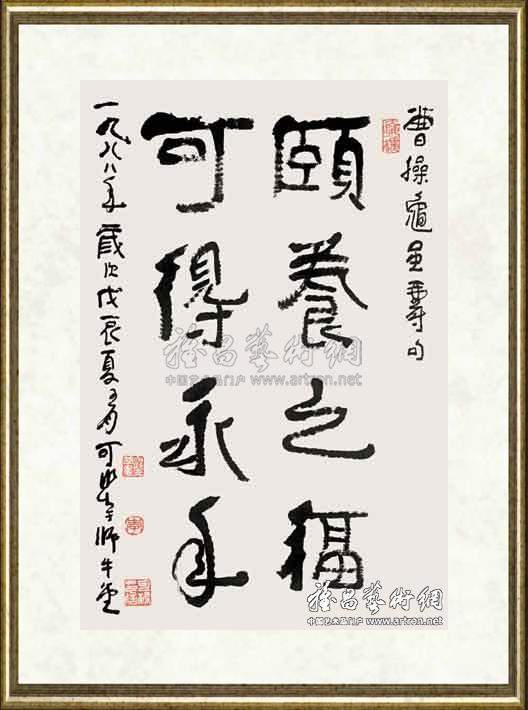 曹操龜虽壽句
頤養之福
可得永年
一九八八年歲次戊辰夏五月可染師牛堂
雅昌藝術網
中国艺术品门户 www.artron.net
雅昌藝術網
中国艺术品门户 www.artron.net